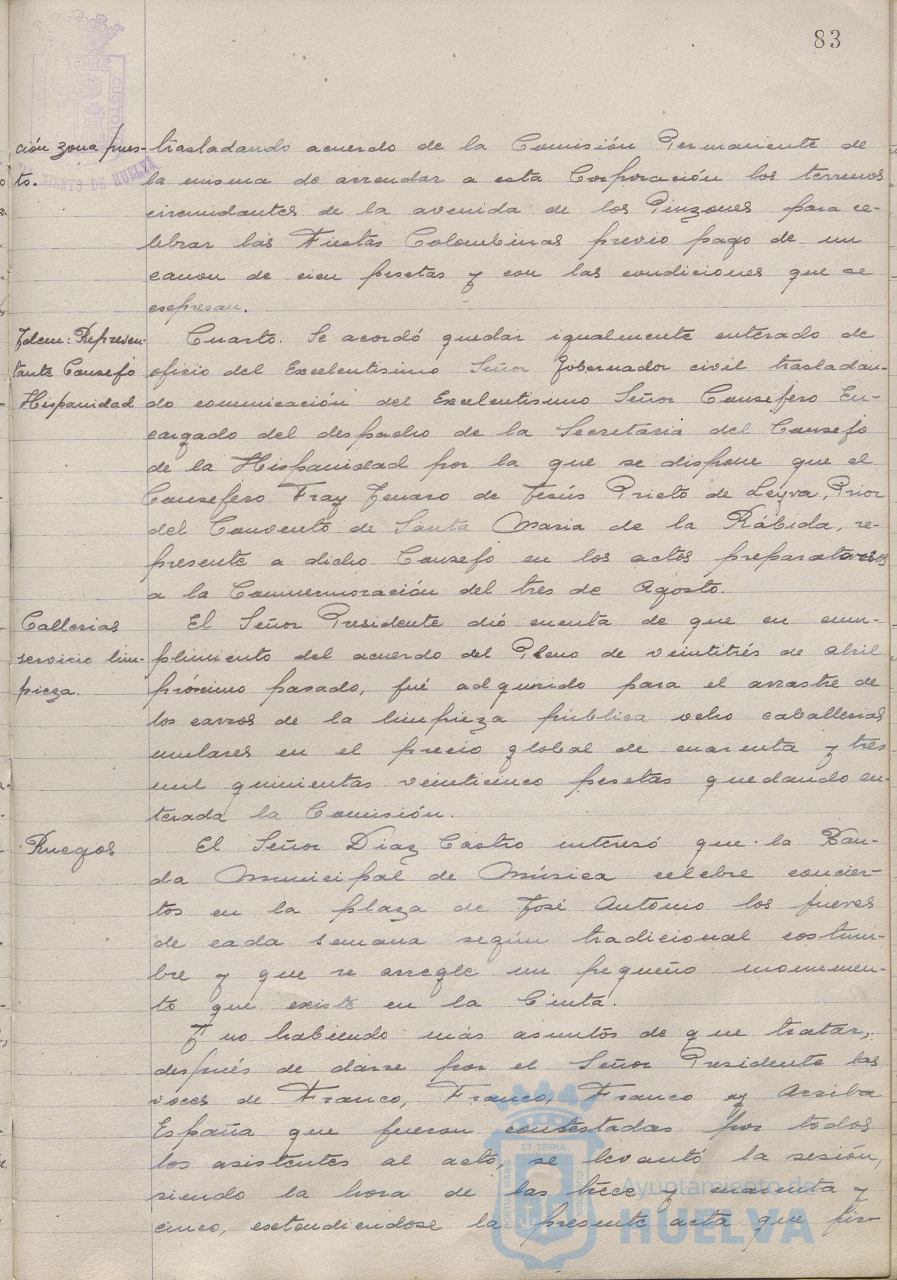 83
ción zona pues-
to.
trasladando acuerdo de la Comisión Permanente de
la misma de arrendar a esta Corporación los terrenos
circundantes de la avenida de los Pinzones para ce-
lebrar las Fiestas Colombinas previo pago de un
canon de cien pesetas y con las condiciones que se
expresan.
Idem: Represen-
tante Consejo
Hispanidad
Cuarto. Se acordó quedar igualmente enterado de
oficio del Excelentisimo Señor Gobernador civil trasladan-
do comunicación del Excelentisimo Señor Consejero En-
cargado del despacho de la Secretaria del Consejo
de la Hispanidad por la que se dispone que el
Consejero Fray Jenaro de Jesús Prieto de Leyva, Prior
del Convento de Santa Maria de la Rábida, re-
presente a dicho Consejo en los actos preparatorios
a la Conmemoración del tres de Agosto.
Callerias
servicio lim-
pieza.
El Señor Presidente dió cuenta de que en cum-
plimiento del acuerdo del Pleno de veintitrés de abril
próximo pasado, fué adquirido para el arrastre de
los carros de la limpieza pública ocho caballerias
mulares en el precio global de cuarenta y tres
mil quinientas veinticinco pesetas quedando en-
terada la Comisión.
Ruegos
El Señor Diaz Castro interesó que la Ban-
da Municipal de Música celebre concier-
tos en la plaza de José Antonio los jueves
de cada semana según tradicional costum-
bre y que se arregle un pequeño monumen-
to que existe en la Cinta.
Y no habiendo más asuntos de que tratar,
después de darse por el Señor Presidente las
voces de Franco, Franco, Franco y Arriba
España que fueron contestadas por todos
los asistentes al acto, se levantó la sesión,
siendo la hora de las trece y cuarenta y
cinco, extendiendose la presente acta que fir-
Ayuntamiento de
HUELVA